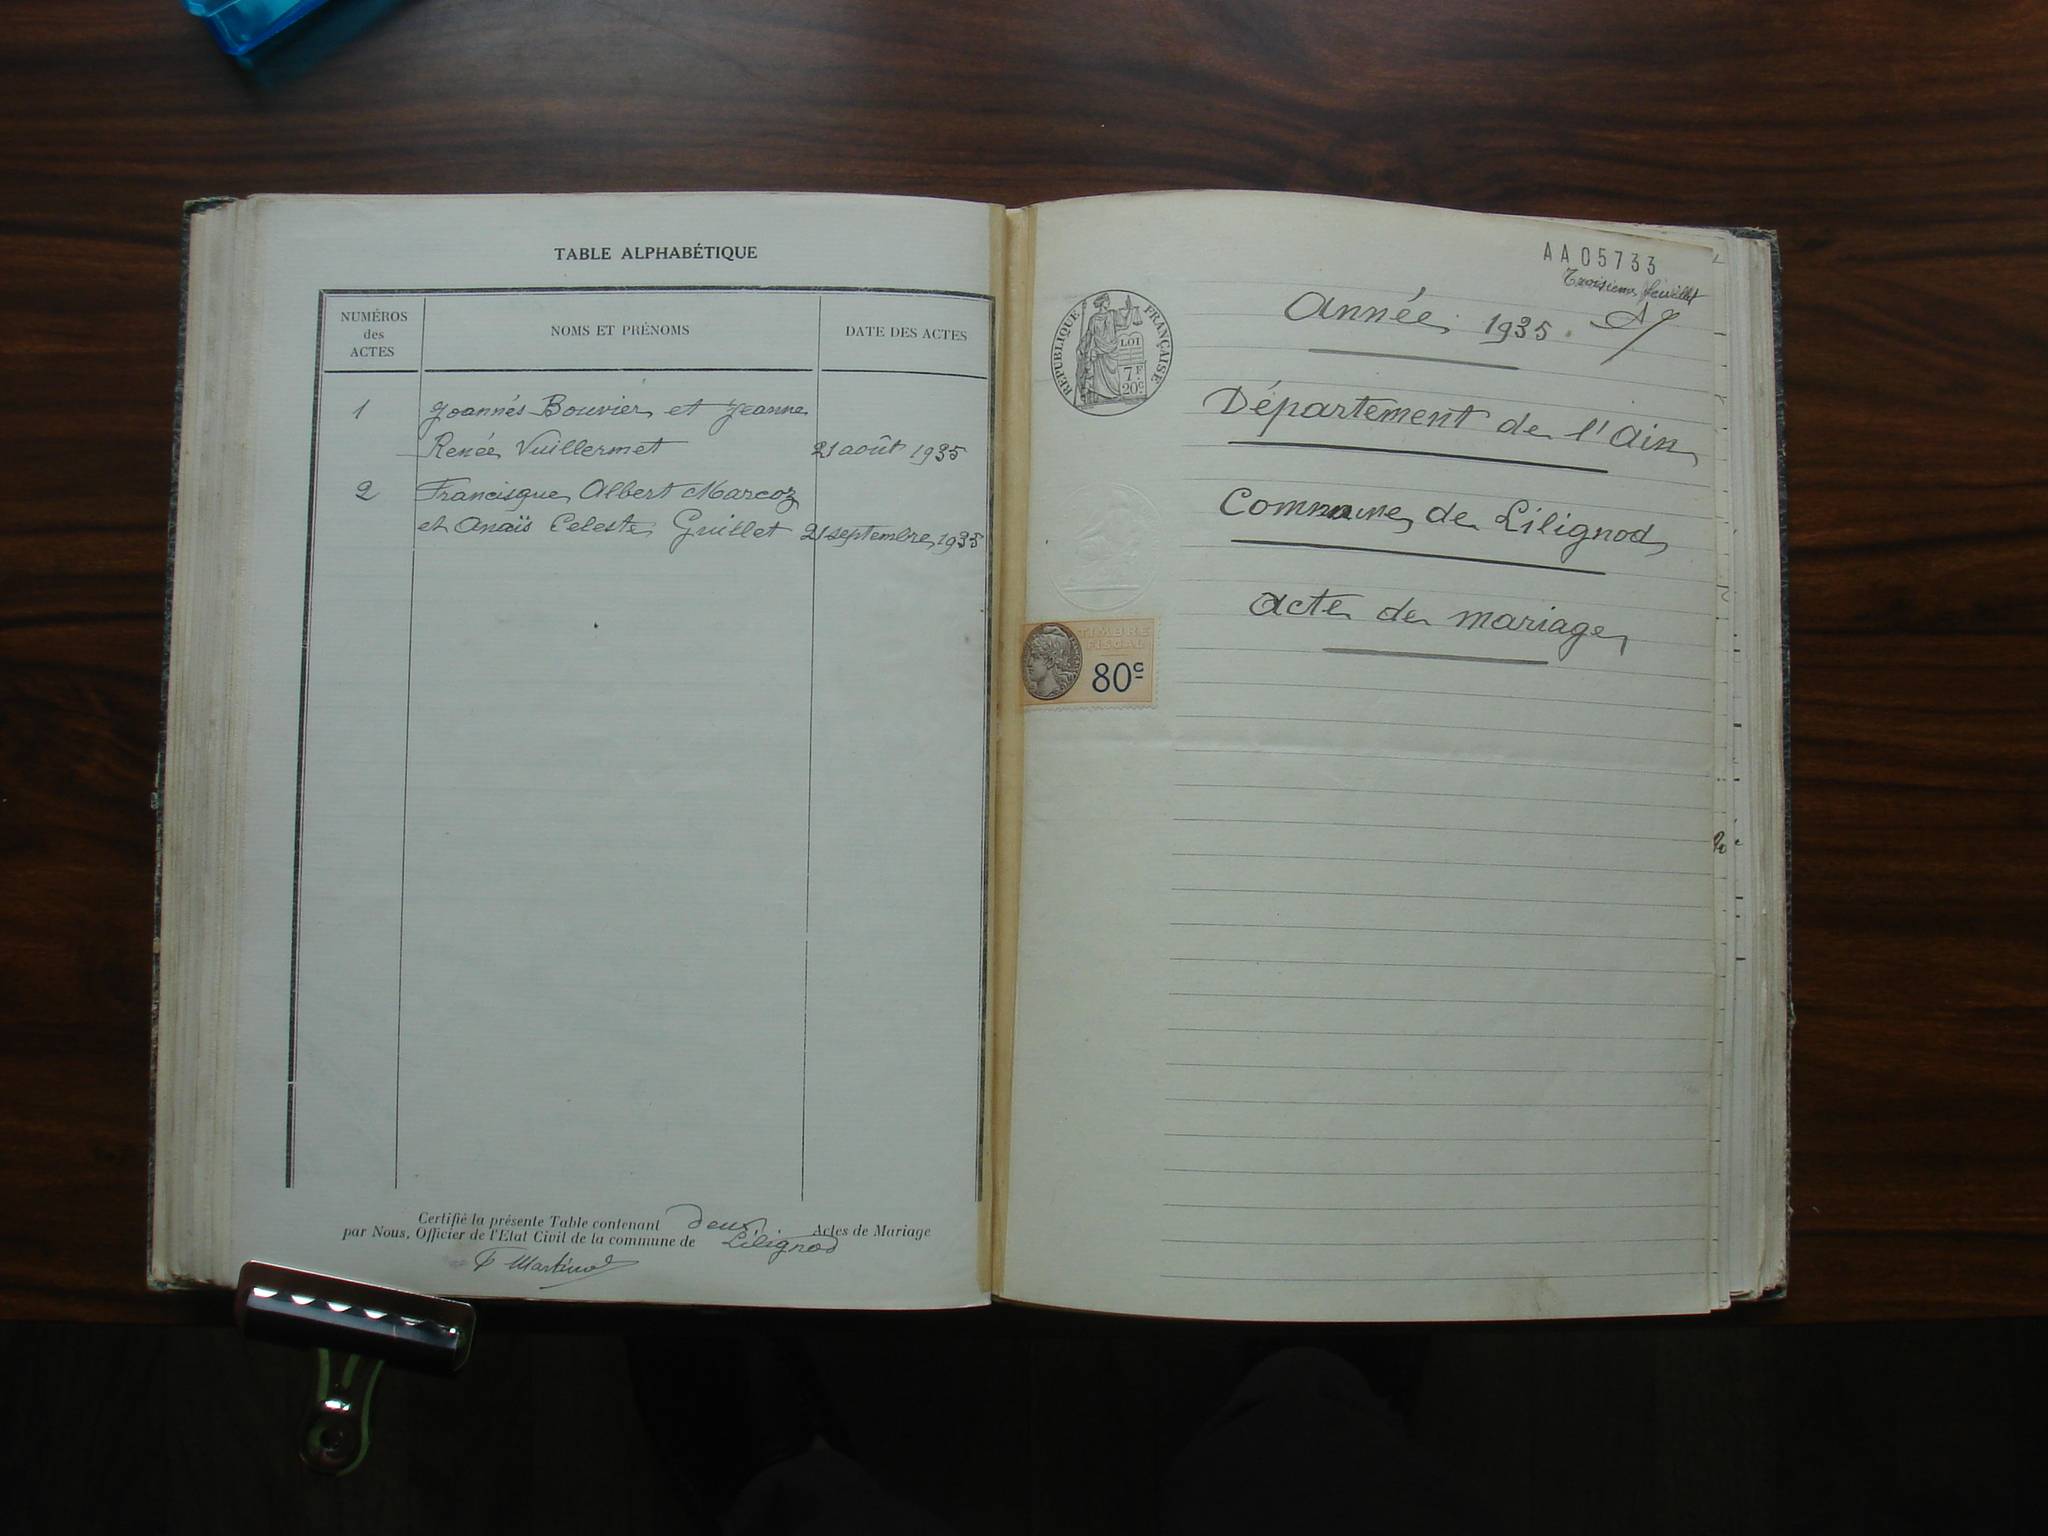 TABLE ALPHABÉTIQUE
NUMÉROS
des
ACTES
NOMS ET PRÉNOMS
DATE DES ACTES
1 Joannés Bouvier et Jeanne
Renée Vuillermet 21 août 1935
2 Francisque Albert Marcoz
et Anaïs Celeste Guillet 21 septembre 1935
Certifié la présente Table contenant deux Actes de Mariage
par Nous, Officier de l'Etat Civil de la commune de Lilignod
AA05733
Troisieme feuillet
RÉPUBLIQUE FRANÇAISE
LOI
7F
20c
Année 1935.
Département de l'Ain
Commune de Lilignod
TIMBRE
FISCAL
80c
Acte de mariage